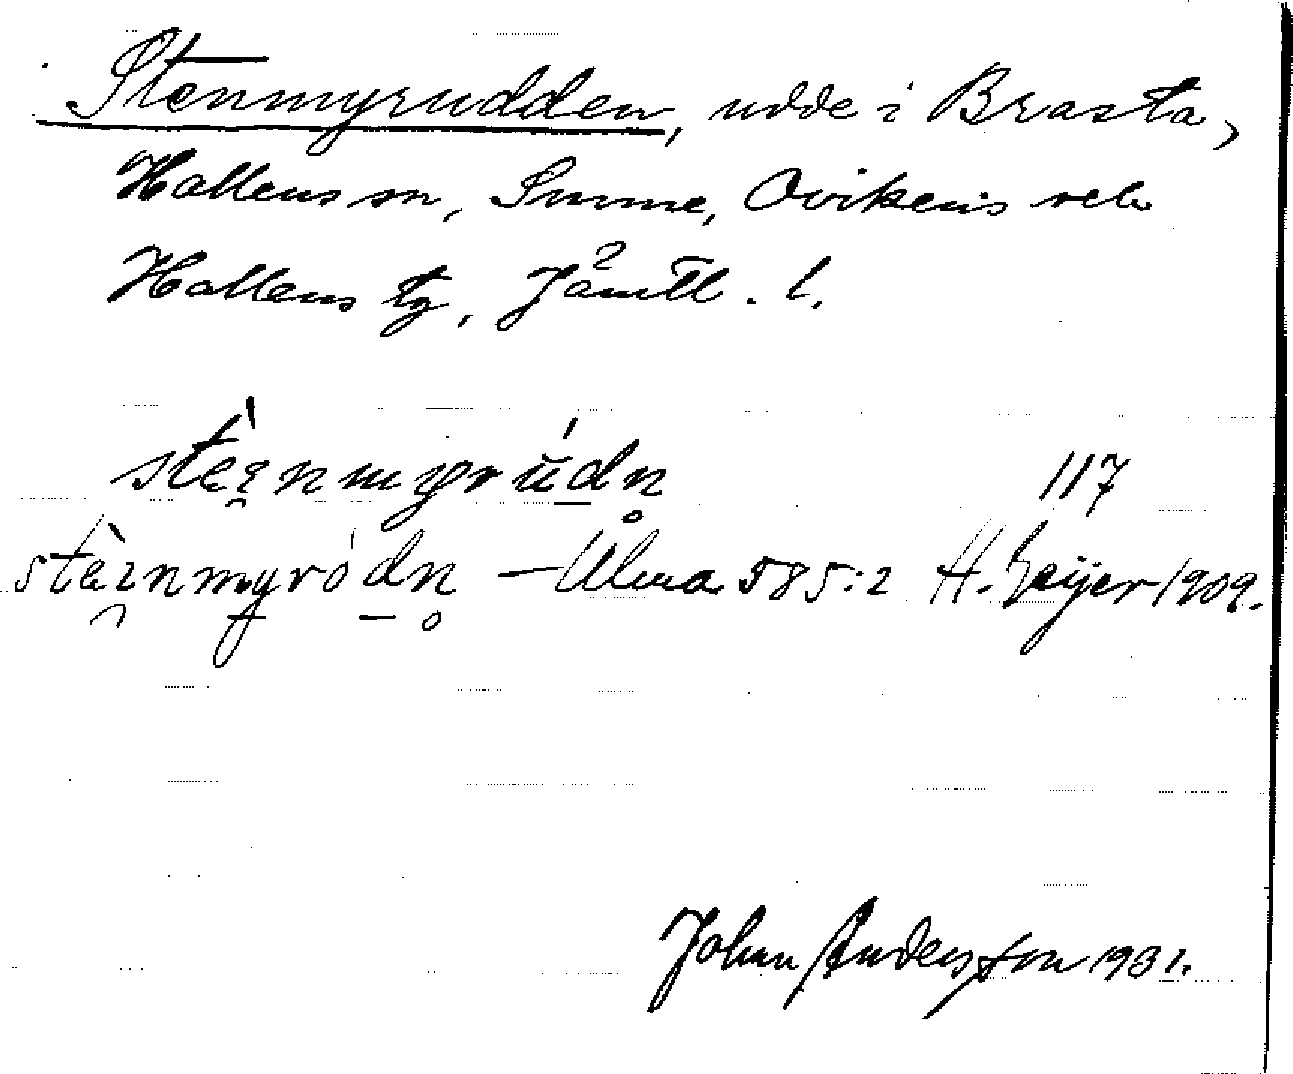 Stenmyrudden, udde i Brasta,
Hallens sn, Sunne, Ovikens
Hallens tg, Jämtl. l.
117
— Ulma 585:2 H. Geijer 1909.
Johan Andersson 1931.